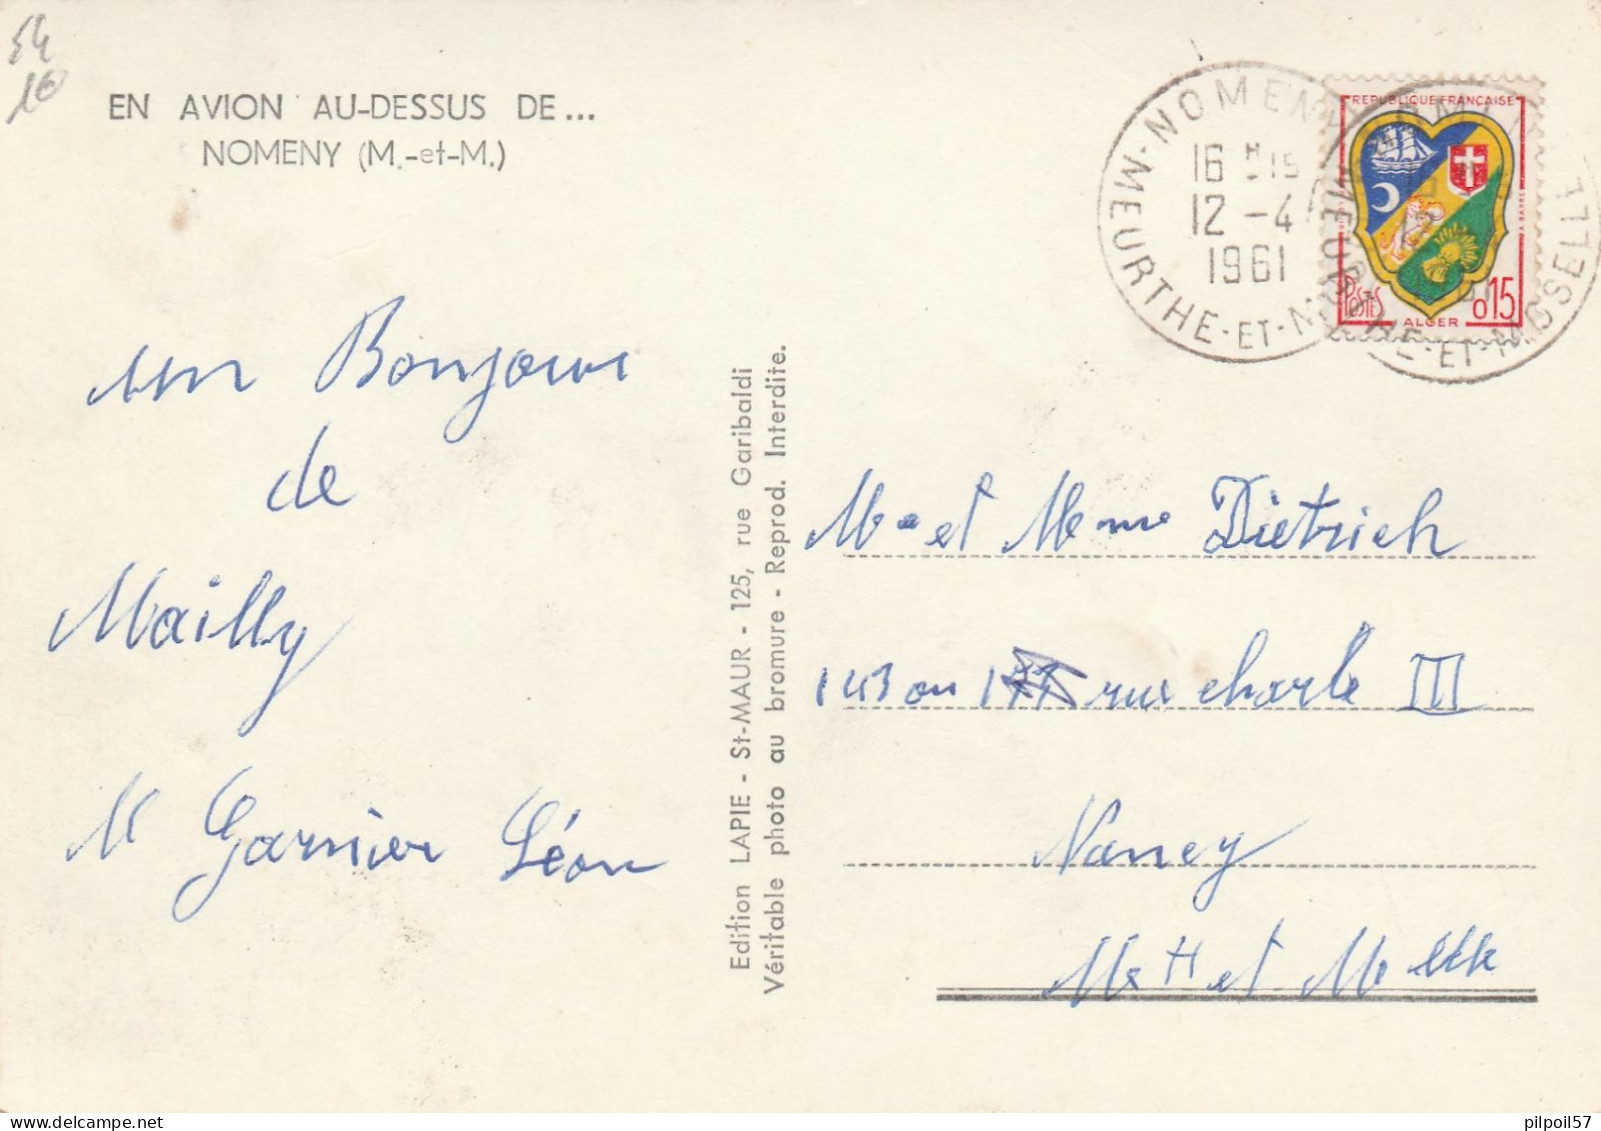 54
10
EN AVION AU-DESSUS DE...
NOMENY (M.-et-M.)
un Bonjour
de
Mailly
Mr Garnier Léon
Edition LAPIE - St-MAUR - 125, rue Garibaldi
Véritable photo au bromure - Reprod. Interdite.
NOMENY
16 H 15
12 - 4
1961
MEURTHE-ET-M
MEURTHE-ET-MOSELLE
REPUBLIQUE FRANÇAISE
POSTES
ALGER
0,15
Mr et Mme Dietrich
143 ou rue charle III
Nancy
M et H et M
pilpoil57